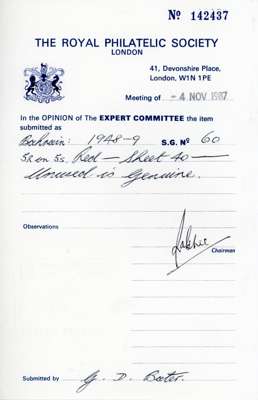 No 142437
THE ROYAL PHILATELIC SOCIETY
LONDON
41, Devonshire Place,
London, W1N 1PE
Meeting of - 4 NOV 1987
In the OPINION of The EXPERT COMMITTEE the item
submitted as
Bahrain: 1948-9 S.G. No 60
5R on 5s. Red - Sheet 40 -
Unused is Genuine.
Observations
Chairman
Submitted by G. D.